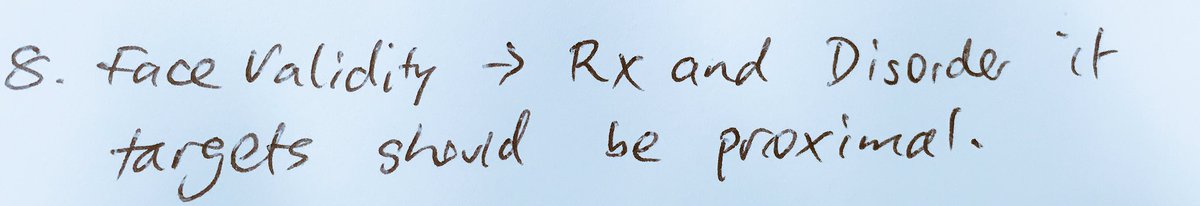 8. Face Validity → Rx and Disorder it
targets should be proximal.